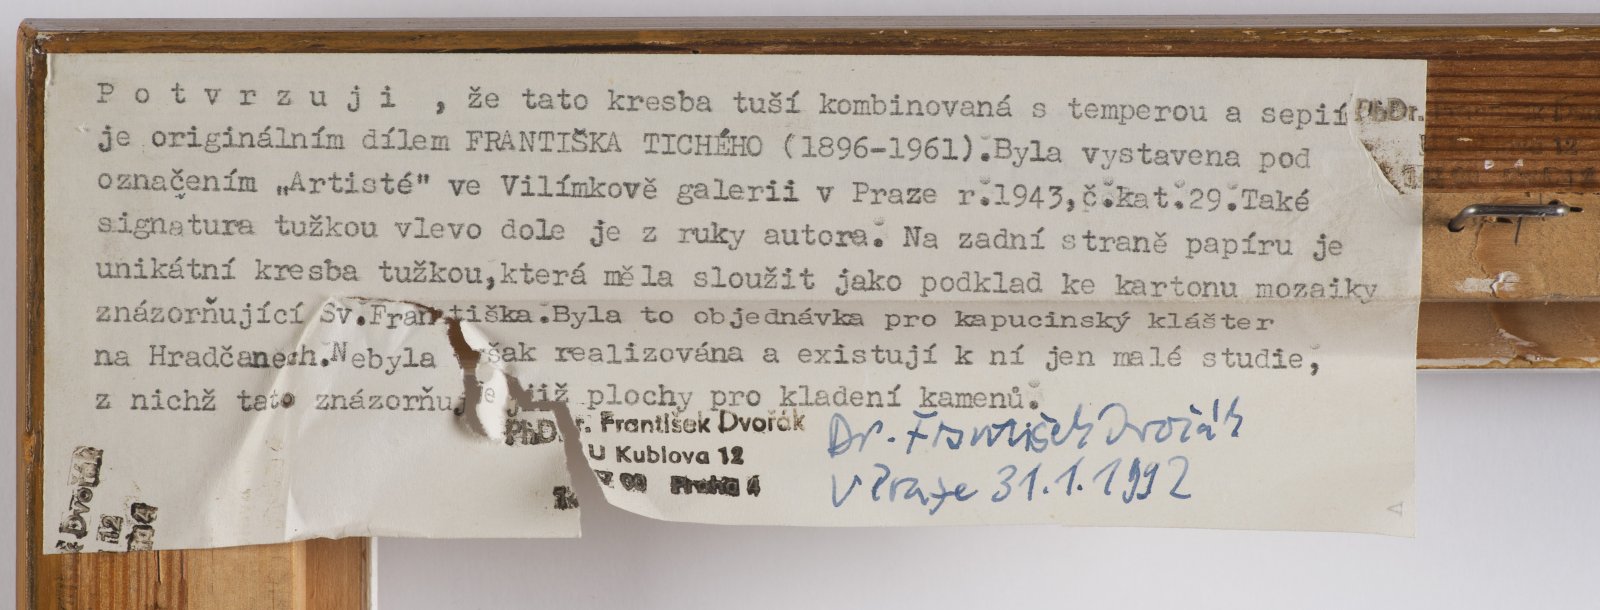 P o t v r z u j i , že tato kresba tuší kombinovaná s temperou a sepií
je originálním dílem FRANTIŠKA TICHÉHO (1896-1961).Byla vystavena pod
označením „Artisté" ve Vilímkově galerii v Praze r.1943,č.kat.29.Také
signatura tužkou vlevo dole je z ruky autora. Na zadní straně papíru je
unikátní kresba tužkou,která měla sloužit jako podklad ke kartonu mozaiky
znázorňující Sv.Františka.Byla to objednávka pro kapucinský klášter
na Hradčanech.Nebyla však realizována a existují k ní jen malé studie,
z nichž tato znázorňuje již plochy pro kladení kamenů.
PhDr. František Dvořák
U Kublova 12
00 Praha 4
Dr. František Dvořák
V Praze 31.1.1992
PhDr.
Dvořák
12